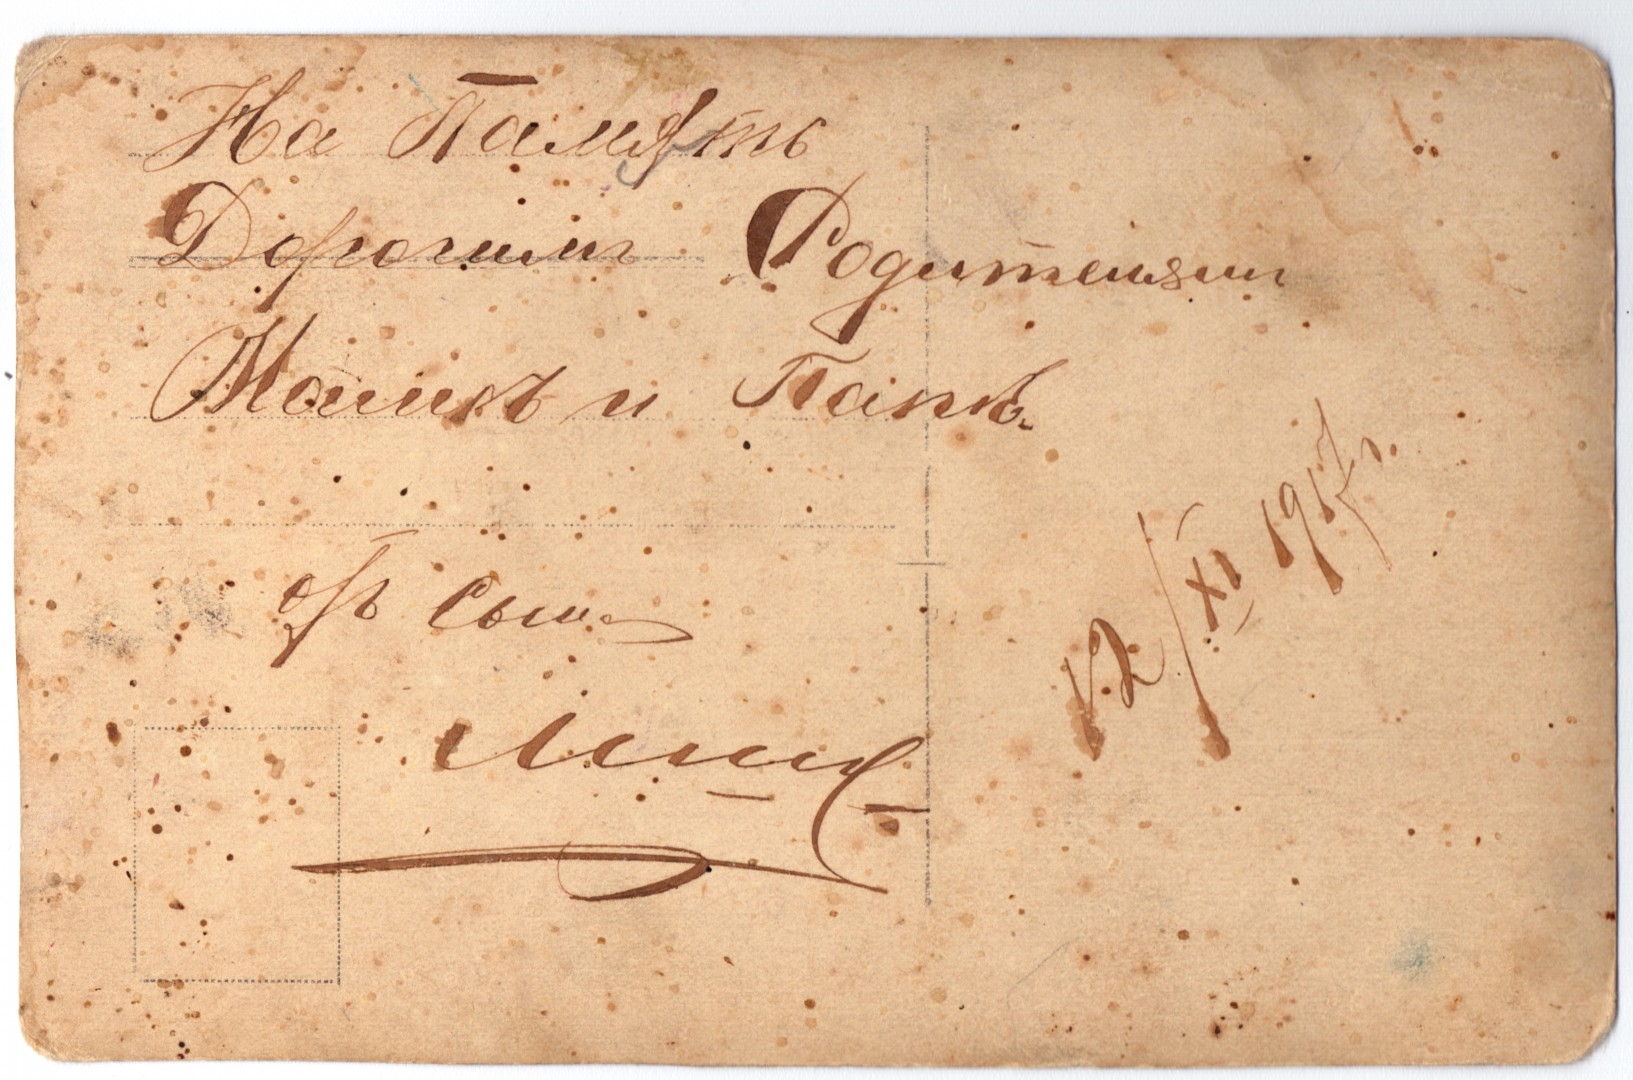 На Память
Дорогимъ Родителямъ
Мамѣ и Папѣ.
отъ Сына
12/XI 1917 г.